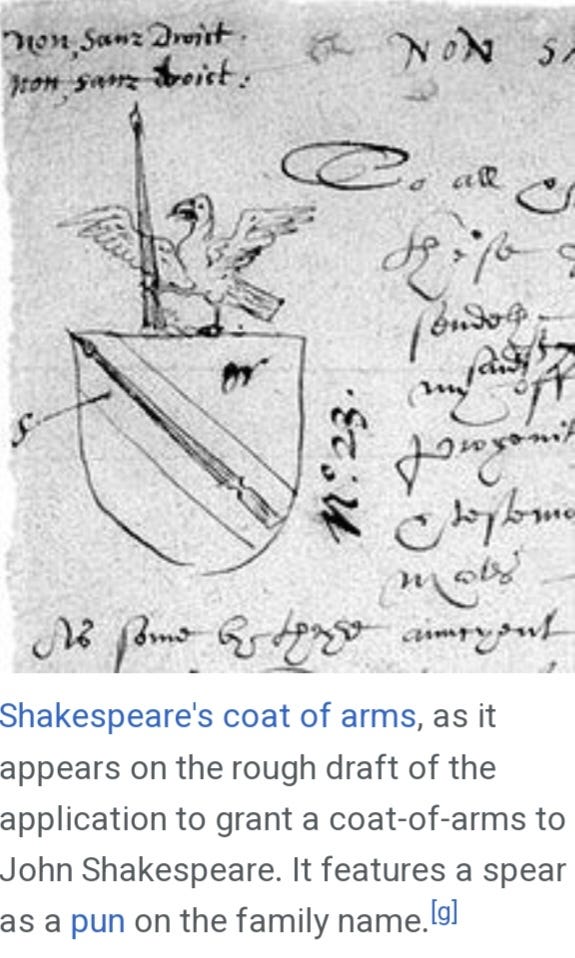 non, Sanz Droict.
non, sanz droict.
NON SA
To all
or
S
N.º 23.
As some by these auncyent
Shakespeare's coat of arms, as it
appears on the rough draft of the
application to grant a coat-of-arms to
John Shakespeare. It features a spear
as a pun on the family name.[g]